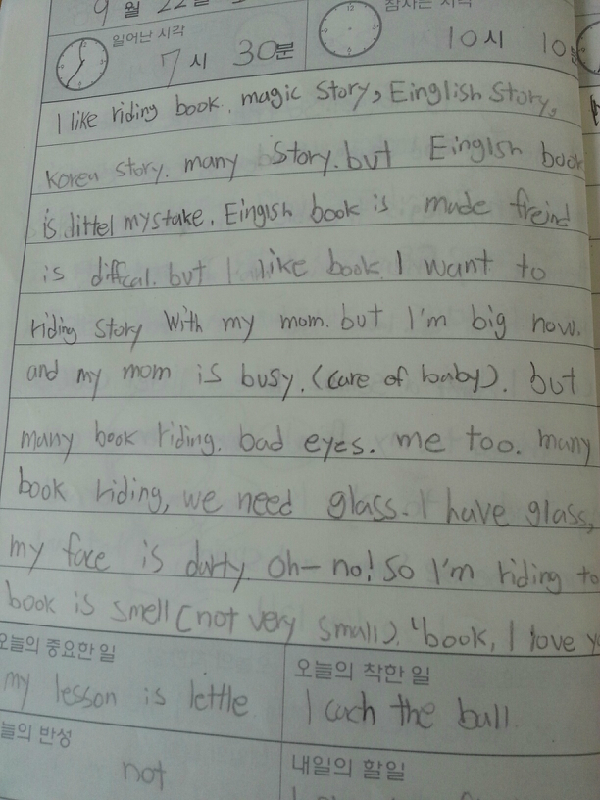 9 월 22일
일어난 시각
7시 30분
잠자는 시각
10시 10분
I like riding book. magic story, Einglish story,
koren story. many story. but Einglsh book
is dittel mystake. Einglsh book is made freind
is diffcal. but I like book. I want to
riding story with my mom. but I'm big now.
and my mom is busy. (care of baby). but
many book riding. bad eyes. me too. many
book riding, we need glass. I have glass,
my face is darty. oh-no! So I'm riding to
book is smell (not very small). "book, I love
오늘의 중요한 일
my lesson is lettle
오늘의 착한 일
I cach the ball.
늘의 반성
not
내일의 할일